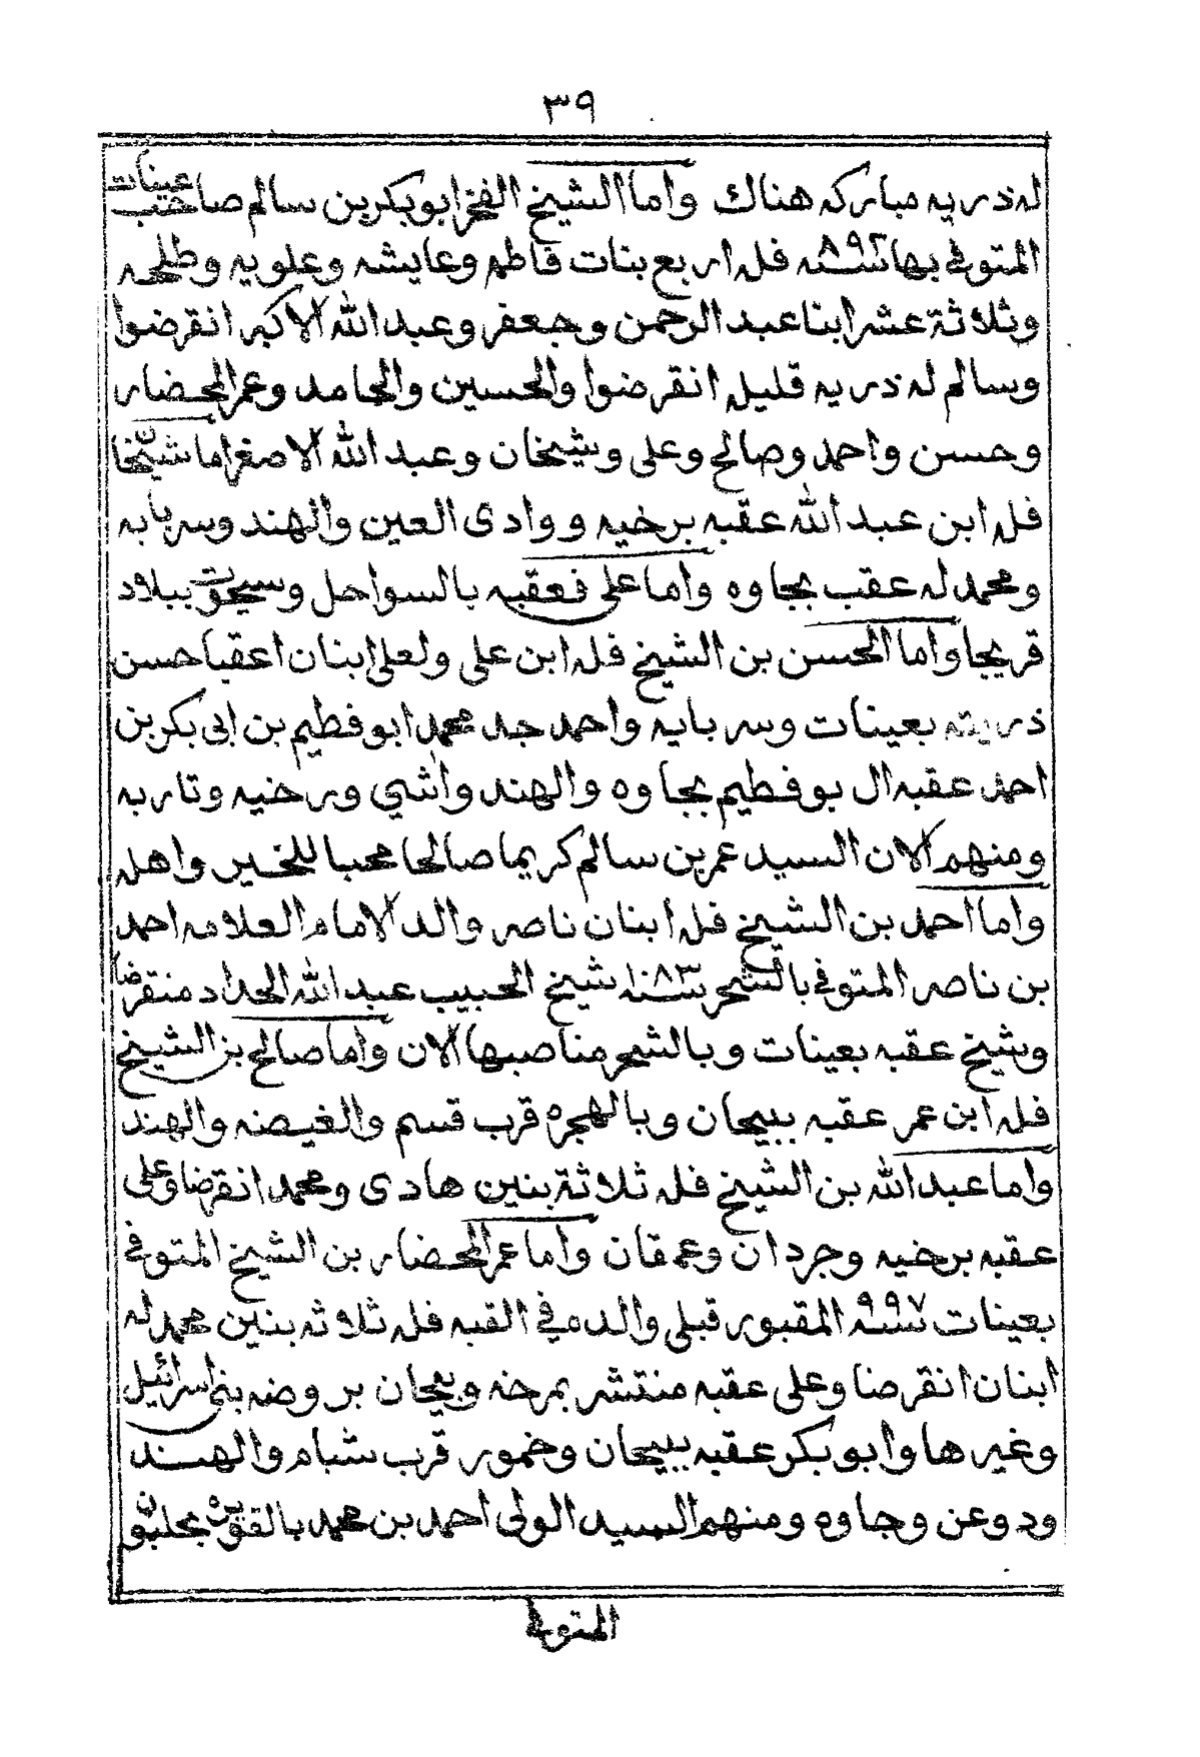 ٣٩
له ذريه مباركه هناك واما الشيخ الفخر ابو بكر بن سالم صاحب عينات
المتوفي بها سنه ٨٩٢ فله اربع بنات فاطم وعايشه وعلويه وطلحه
وثلاثة عشر ابنا عبد الرحمن وجعفر وعبد الله الاكبر انقرضوا
وسالم له ذريه قليل انقرضوا والحسين والحامد وعمر المحضار
وحسن واحمد وصالح وعلى وشيخان وعبد الله الاصغر اما شيخان
فله ابن عبد الله عقبه برخيه ووادى العين والهند وسربايه
ومحمد له عقب بجاوه واما على فعقبه بالسواحل وسيحوت ببلاد
قريحا واما الحسن بن الشيخ فله ابن على ولعلى ابنان اعقبا حسن
ذريته بعينات وسربايه واحمد جد محمد ابو فطيم بن ابي بكر بن
احمد عقبه ال بو فطيم بجاوه والهند واشي ورخيه وتاربه
ومنهم الان السيد عمر بن سالم كريما صالحا محبا للخير واهله
واما احمد بن الشيخ فله ابنان ناصر والد الامام العلامه احمد
بن ناصر المتوفي بالشحر سنه ١٠٨٣ شيخ الحبيب عبد الله الحداد منقرضا
وشيخ عقبه بعينات وبالشحر مناصبها الان واما صالح بن الشيخ
فله ابن عمر عقبه ببيحان وبالهجره قرب قسم والغيضه والهند
واما عبد الله بن الشيخ فله ثلاثة بنين هادى ومحمد انقرضا وعلى
عقبه برخيه وجردان وعمقان واما عمر المحضار بن الشيخ المتوفي
بعينات سنه ٩٩٧ المقبور قبلي والده في القبه فله ثلاثه بنين محمد له
ابنان انقرضا وعلى عقبه منتشر بمرخه وبيحان بروضه بني اسرائيل
وغيرها وابو بكر عقبه ببيحان وخمور قرب شبام والهند
ودوعن وجاوه ومنهم السيد الولي احمد بن محمد بالقويره بحلبون
المتوفي